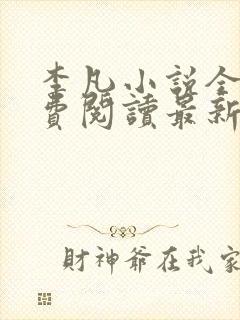 李凡小説全
費閱讀最新
財神爺在我家